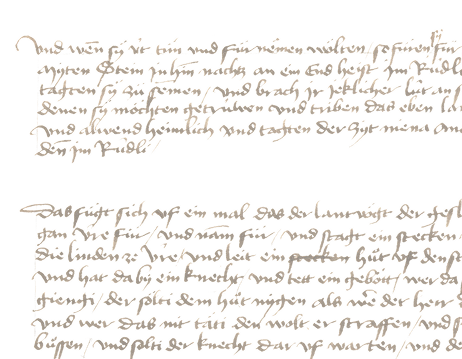 Vnd wen sy üt tun vnd für nemen wolten, so fůren sy für
mytten Stein jn hin nachtz an ein End heist jm Rüdli
tagten sy zů semen, vnd brach jr jeklicher lüt an s
denen sy möchten getrüwen vnd triben das eben lan
vnd alwend heimlich vnd tagten der zyt niena an
den jm Rüdli
Das fügt sich vf ein mal das der lantvögt der gesl
gan Vre für, vnd nam für, vnd stagt ein stecken
die linden ze Vre, vnd leit ein stecken hůt vf den st
vnd hat daby ein knecht vnd tett ein gebott, wer da
giengi, der sölti dem hůt nygen als wē der herr
vnd wer das nit täti den wolt er straffen, vnd s
büssen, vnd sölti der knecht dar vf warten, vnd de